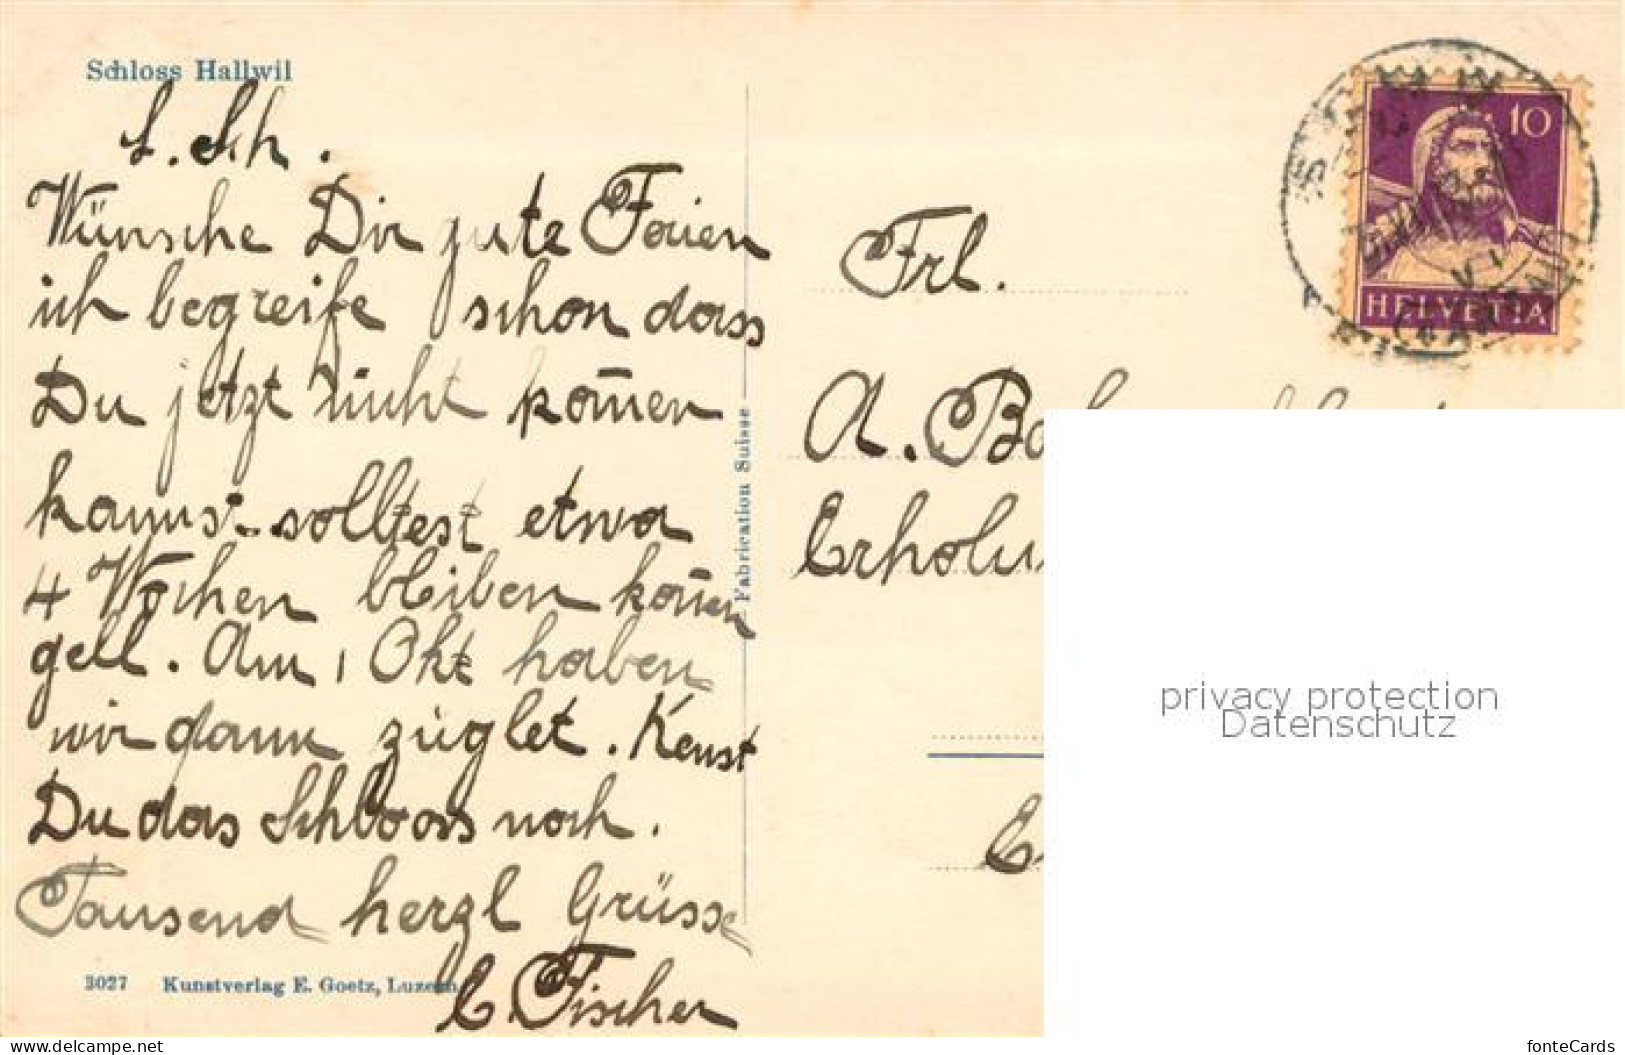 Schloss Hallwil
L. Sch.
Wünsche Dir gute Ferien
ich begreife schon dass
Du jetzt nicht kom̄en
kanns. solltest etwa
4 Wochen bleiben kön̄en
gell. Am 1 Okt haben
wir dann züglet. Kenst
Du das Schlooss noch.
Tausend herzl Grüsse
C. Fischer
3027 Kunstverlag E. Goetz, Luzern
Fabrication Suisse
10
HELVETIA
Frl.
A.
privacy protection
Datenschutz
www.delcampe.net
fonteCards